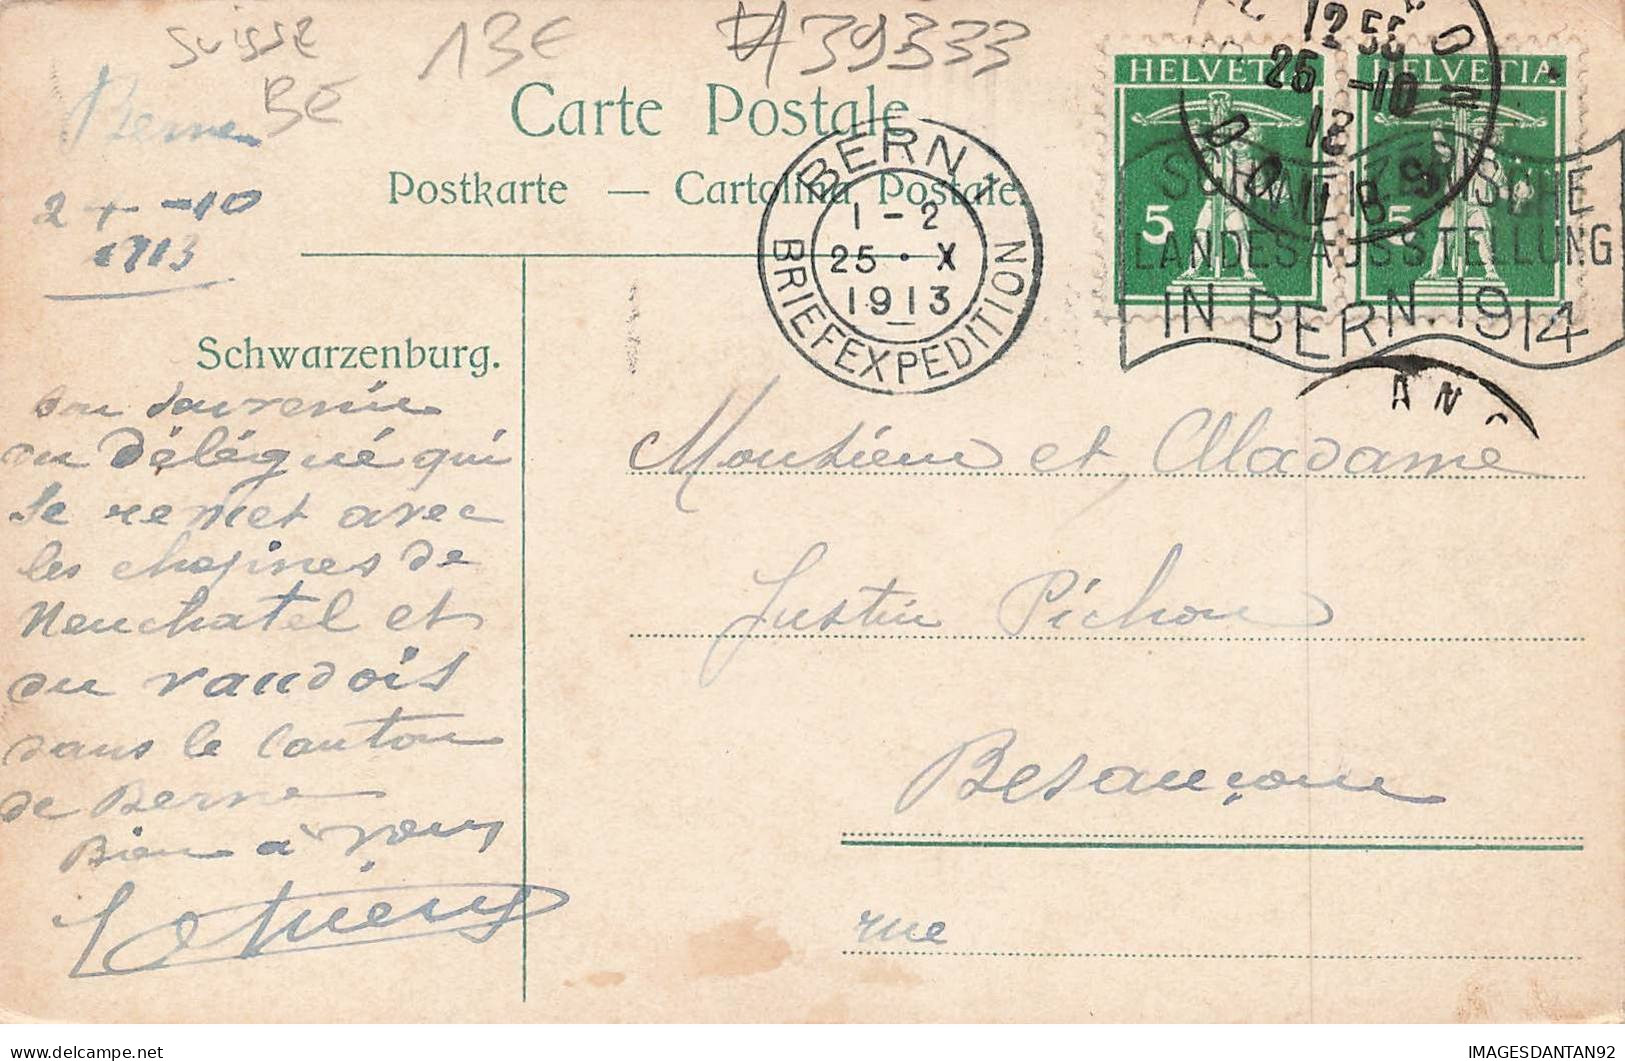 suisse
BE
13€
#A39333
Berne
24-10
1913
Carte Postale
Postkarte — Cartolina Postale.
BERN 1
1-2
25·X
1913
BRIEFEXPEDITION
HELVETIA
5
HELVETIA
5
12 55
25 -10
DOUBS
SCHWEIZERISCHE
LANDESAUSSTELLUNG
IN BERN. 1914
AN
Schwarzenburg.
bon souvenir
du délégué qui
se remet avec
les chefines de
Neuchatel et
du vaudois
dans le Canton
de Berne
Bien à vous
Monsieur et Madame
Justin Pichon
Besançon
rue
IMAGESDANTAN92
delcampe.net